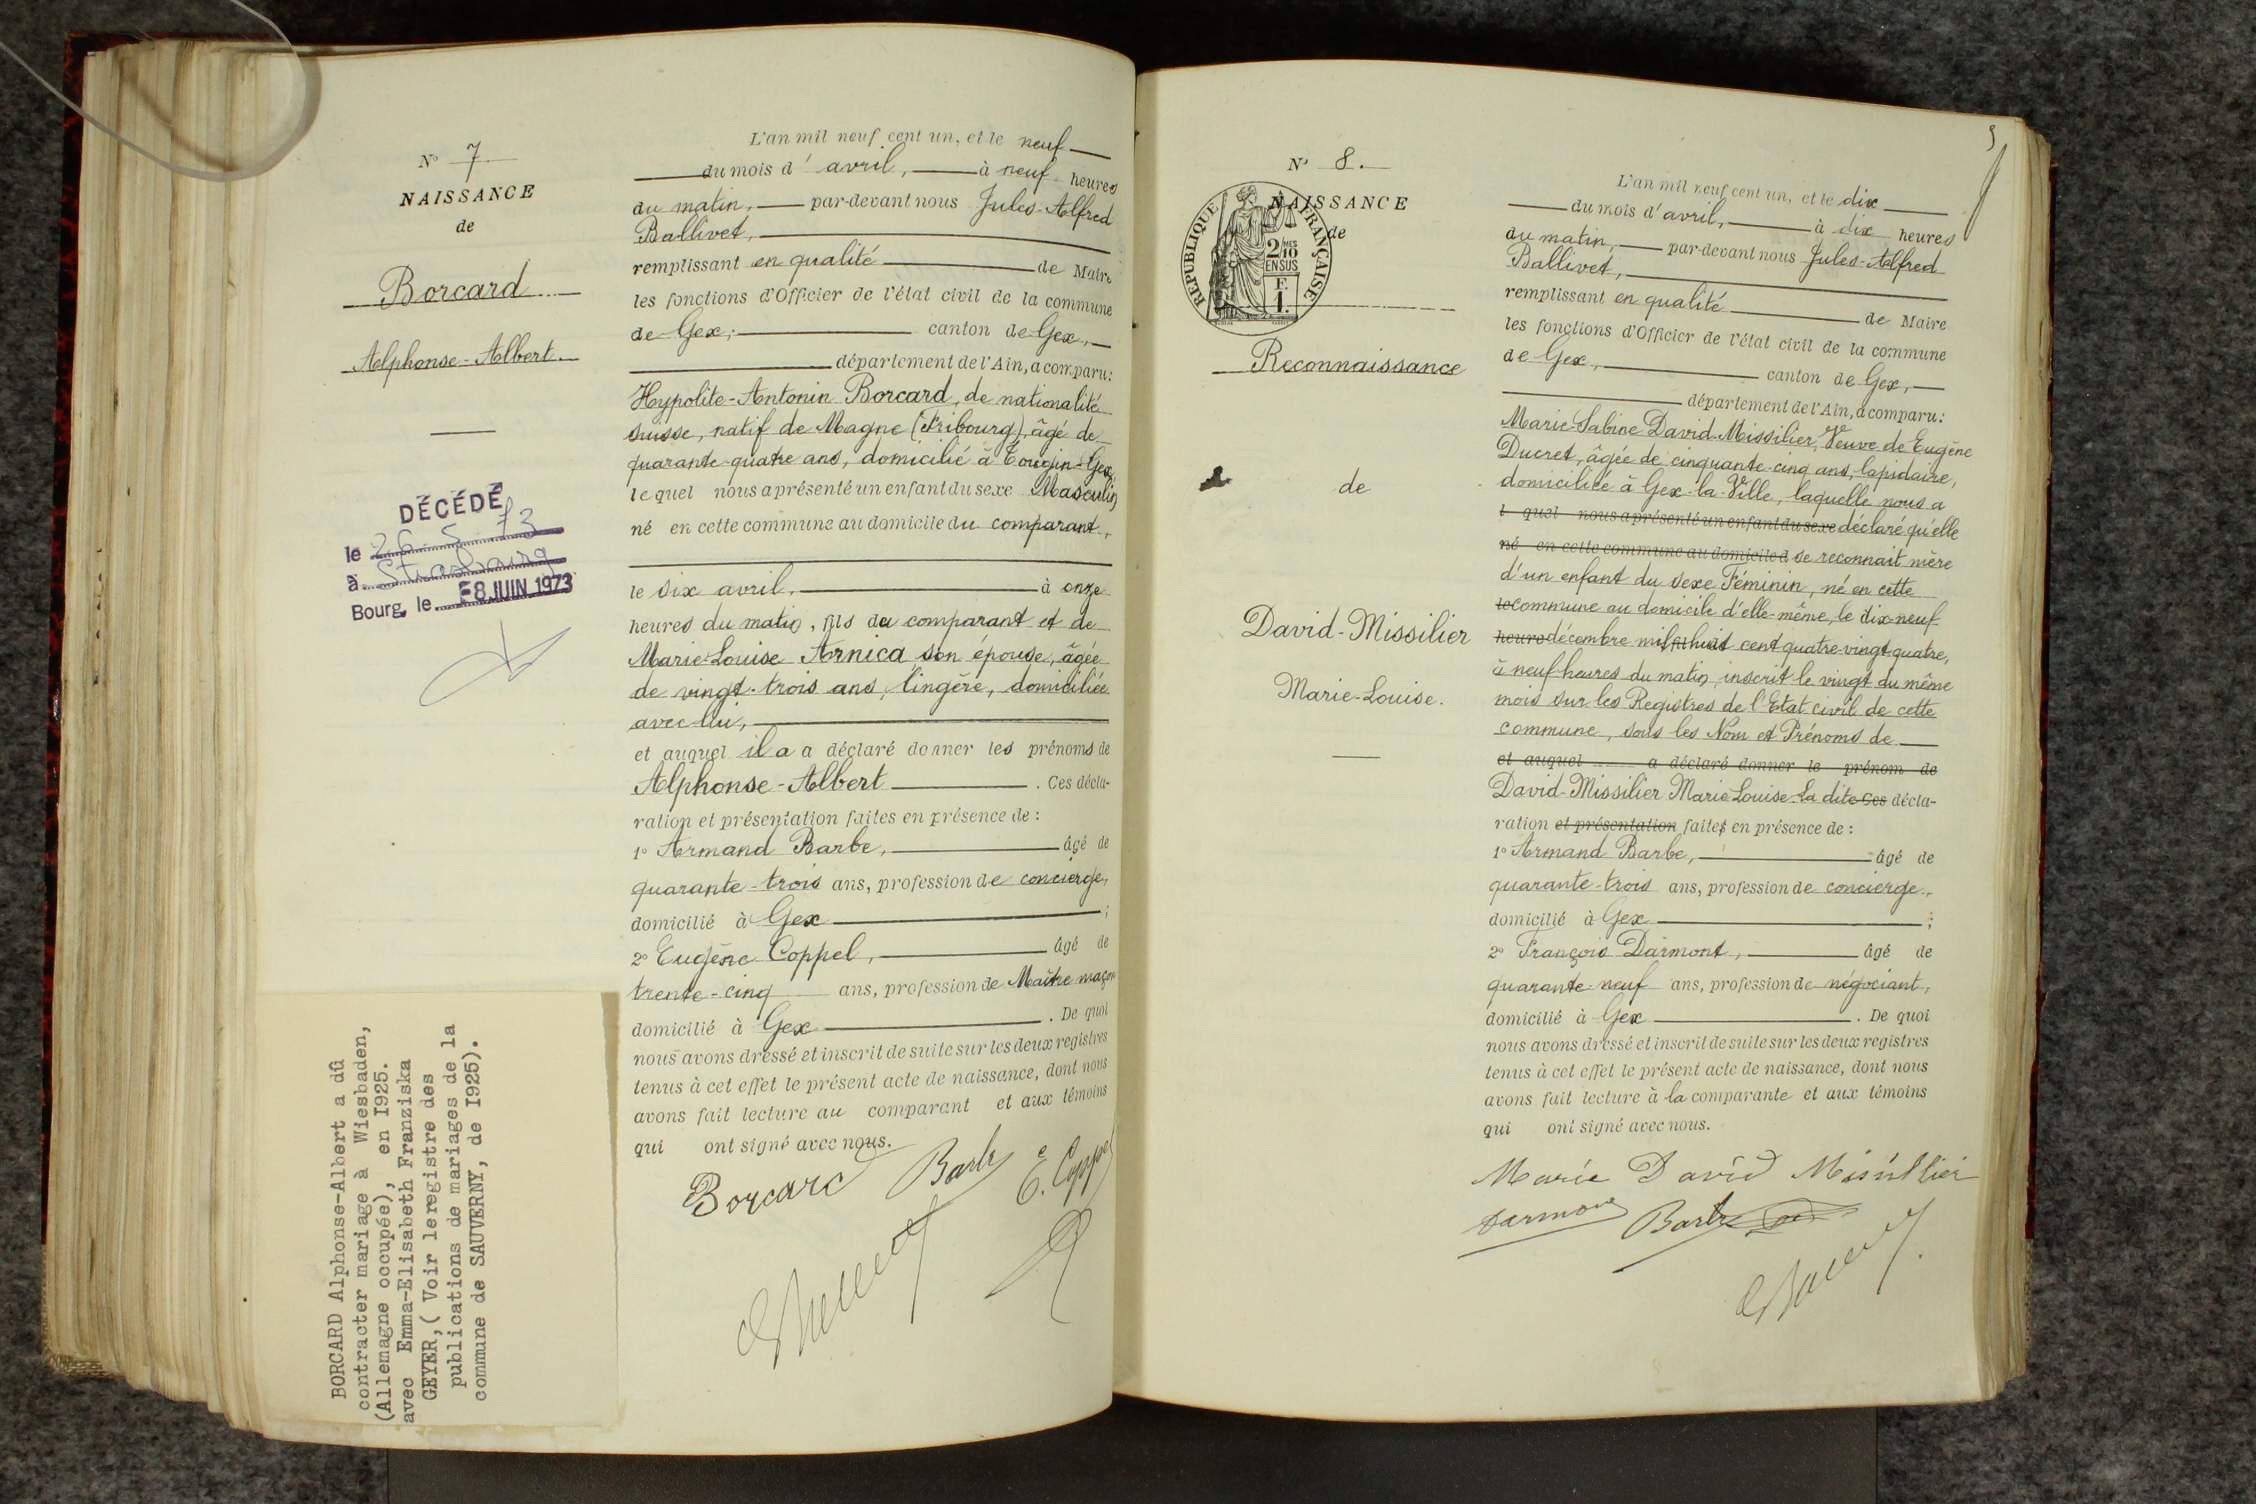 N° 7
NAISSANCE
de
Borcard
Alphonse-Albert
DÉCÉDÉ
le 26.5.73
à Strasbourg
Bourg, le -8 JUIN 1973
BORCARD Alphonse-Albert a dû
contracter mariage à Wiesbaden,
(Allemagne occupée), en I925.
avec Emma-Elisabeth Franziska
GEYER,( Voir leregistre des
publications de mariages de la
commune de SAUVERNY, de I925).
L'an mil neuf cent un, et le neuf
du mois d'avril, à neuf heures
du matin, par-devant nous Jules-Alfred
Ballivet,
remplissant en qualité de Maire
les fonctions d'Officier de l'état civil de la commune
de Gex, canton de Gex,
département de l'Ain, a comparu:
Hypolite-Antonin Borcard, de nationalité
suisse, natif de Magne (Fribourg), âgé de
quarante-quatre ans, domicilié à Tougin-Gex,
lequel nous a présenté un enfant du sexe Masculin,
né en cette commune au domicile du comparant,
le six avril, à onze
heures du matin, fils du comparant et de
Marie-Louise Arnica son épouse, âgée
de vingt-trois ans, lingère, domiciliée
avec lui,
et auquel il a a déclaré donner les prénoms de
Alphonse-Albert. Ces décla-
ration et présentation faites en présence de :
1° Armand Barbe, âgé de
quarante-trois ans, profession de concierge,
domicilié à Gex ;
2° Eugène Coppel, âgé de
trente-cinq ans, profession de Maître maçon
domicilié à Gex. De quoi
nous avons dressé et inscrit de suite sur les deux registres
tenus à cet effet le présent acte de naissance, dont nous
avons fait lecture au comparant et aux témoins
qui ont signé avec nous.
Borcard Barbe E. Coppel
N° 8.
NAISSANCE
de
RÉPUBLIQUE FRANÇAISE
2/10 MES
EN SUS
F.
1.
Reconnaissance
de
David-Missilier
Marie-Louise.
L'an mil neuf cent un, et le dix
du mois d'avril, à dix heures
du matin, par-devant nous Jules-Alfred
Ballivet,
remplissant en qualité de Maire
les fonctions d'Officier de l'état civil de la commune
de Gex, canton de Gex,
département de l'Ain, a comparu:
Marie-Sabine David-Missilier, Veuve de Eugène
Ducret, âgée de cinquante-cinq ans, lapidaire,
domiciliée à Gex-la-Ville, laquelle nous a
l quel nous a présenté un enfant du sexe déclaré qu'elle
né en cette commune au domicile d se reconnait mère
d'un enfant du sexe Féminin, né en cette
le commune au domicile d'elle-même, le dix-neuf
heure décembre mil huit cent quatre-vingt-quatre,
à neuf heures du matin, inscrit le vingt du même
mois sur les Registres de l'Etat civil de cette
commune, sous les Nom et Prénoms de
et auquel a déclaré donner le prénom de
David-Missilier Marie Louise. La dite Ces décla-
ration et présentation faites en présence de :
1° Armand Barbe, âgé de
quarante-trois ans, profession de concierge,
domicilié à Gex ;
2° François Darmont, âgé de
quarante-neuf ans, profession de négociant,
domicilié à Gex. De quoi
nous avons dressé et inscrit de suite sur les deux registres
tenus à cet effet le présent acte de naissance, dont nous
avons fait lecture à la comparante et aux témoins
qui ont signé avec nous.
Marie David Misillier
Darmont Barbe